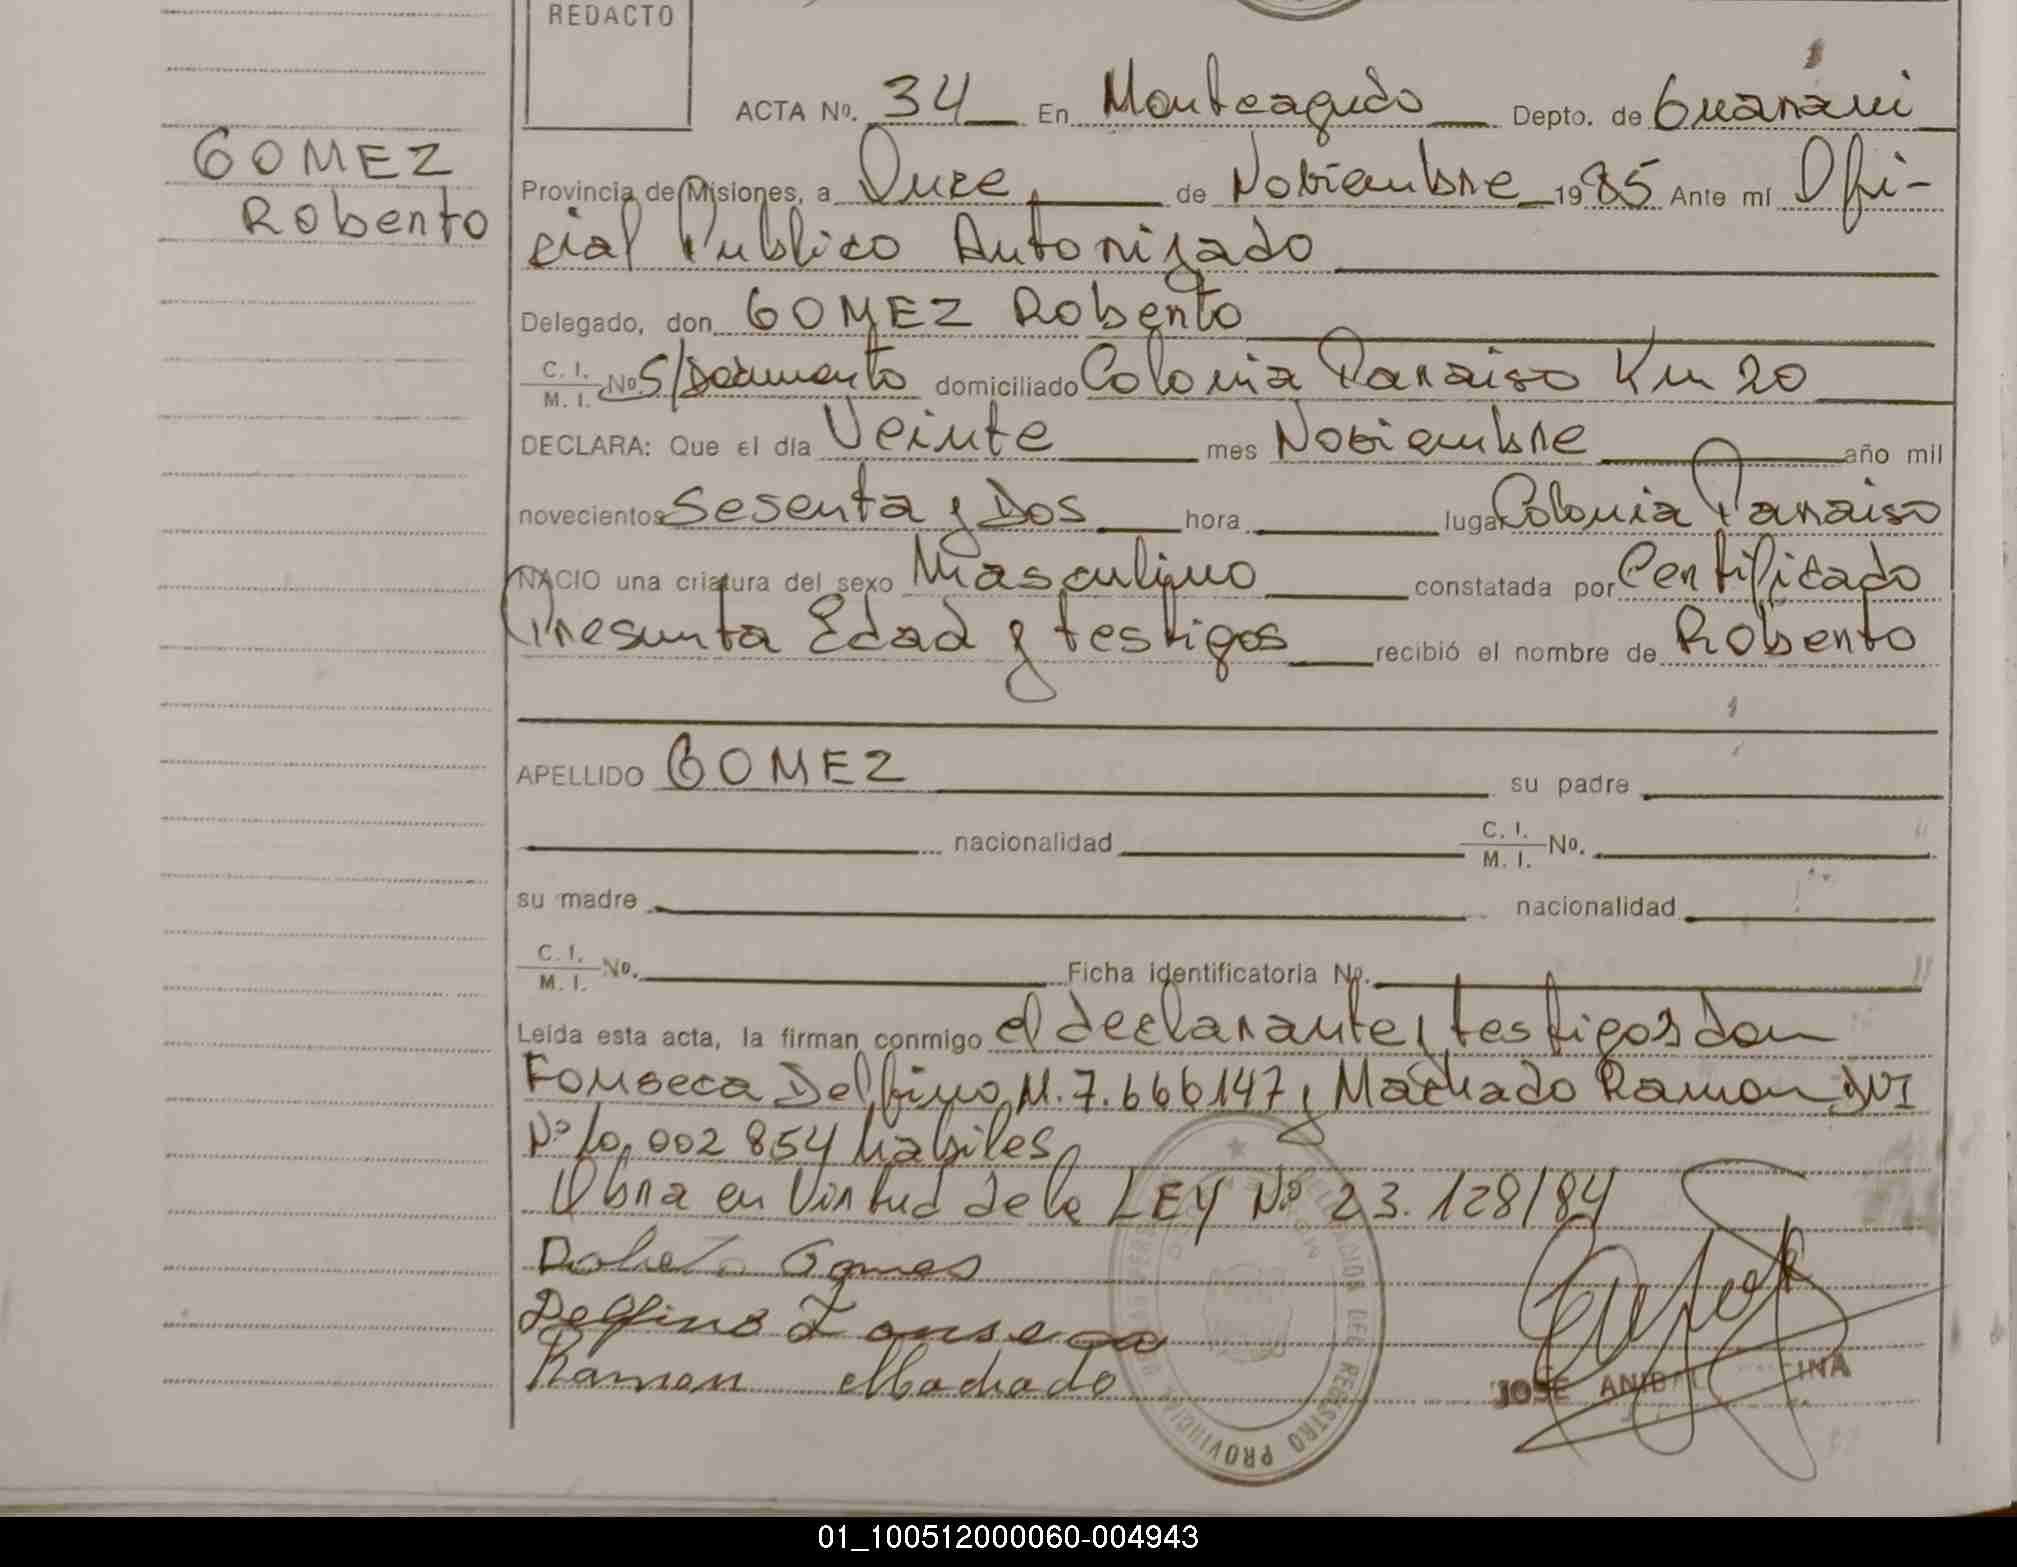 REDACTO
ACTA Nº. 34 En Monteagudo Depto. de Guarani
GOMEZ
Roberto
Provincia de Misiones, a Once de Nobiembre 1985 Ante mí Ofi-
cial Publico Autorizado
Delegado, don GOMEZ Roberto
C. I. / M. I. Nº S/Documento domiciliado Colonia Paraiso Km 20
DECLARA: Que el día Veinte mes Nobiembre año mil
novecientos Sesenta y Dos hora lugar Colonia Paraiso
NACIO una criatura del sexo Masculino constatada por Certificado
Presunta Edad y testigos recibió el nombre de Roberto
APELLIDO GOMEZ su padre
nacionalidad C. I. / M. I. Nº.
su madre nacionalidad
C. I. / M. I. Nº. Ficha identificatoria Nº.
Leída esta acta, la firman conmigo el declarante y testigos don
Fonseca Delfino M. 7.666147 y Machado Ramon DNI
Nº 10.002 854 habiles
Obra en Virtud de la LEY Nº 23.128/84
Roberto Gomes
Delfino Fonseca
Ramon Machado
DELEGACION DEL REGISTRO PROVINCIAL
JOSE ANIBAL
01_100512000060-004943